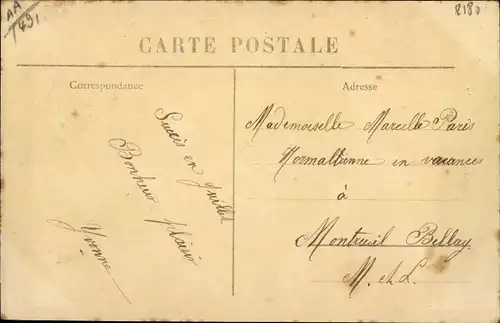 AA
1491
8180
CARTE POSTALE
Correspondance
Adresse
Succès en Juillet
Bonheur plaisir
Yvonne
Mademoiselle Marcelle Paris
Normalienne en vacances
à
Montreuil Bellay
M. et L.